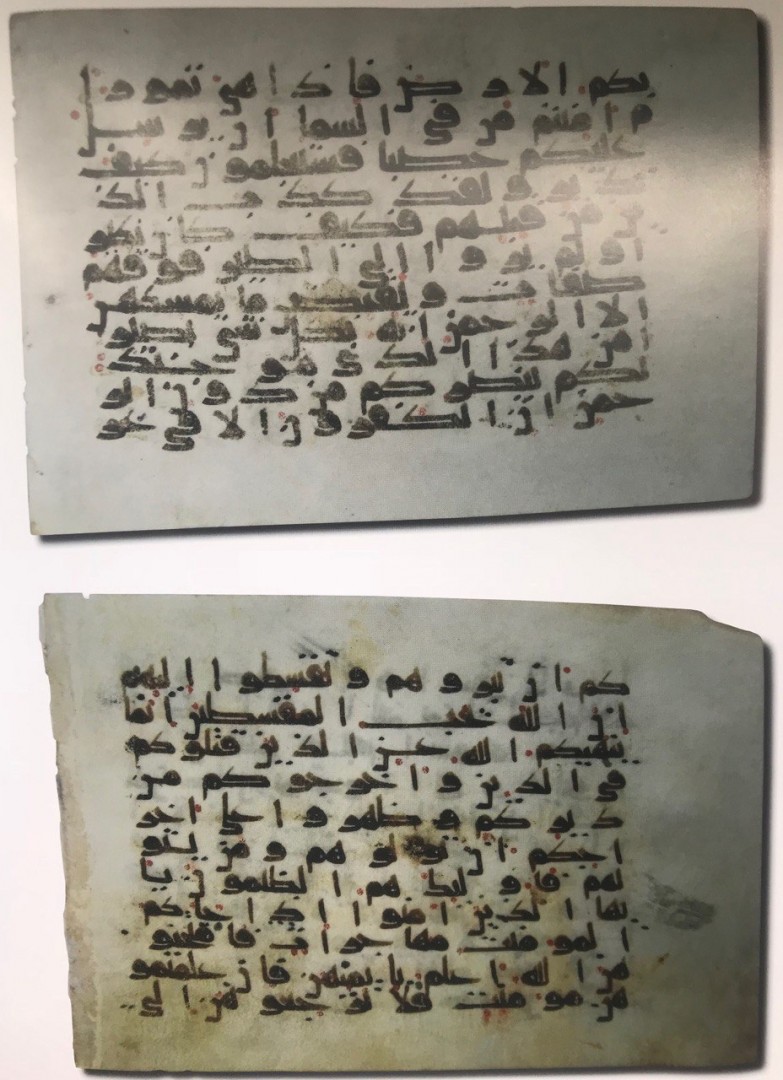 بكم الارض فاذا هي تمور ا
م امنتم من في السما ان يرسل
عليكم حصبا فستعلمون كيف
نذير ولقد كذب الذ
ين من قبلهم فكيف كان نكير
اولم يروا الى الطير فوقهم
صفات ويقبضن ما يمسكهن
الا الرحمن انه بكل شي بصير
امن هذا الذي هو جند
لكم ينصركم من دون الر
حمن ان الكفرون الا في غرو
كم ان تبروهم وتقسطوا اليهم
ان الله يحب المقسطين انما
ينهيكم الله عن الذين قتلوكم
في الدين واخرجوكم من
ديركم وظهروا على اخر
اجكم ان تولوهم ومن يتو
لهم فاوليك هم الظلمون يا
يها الذين امنوا اذا جاكم
المومنت مهاجرات فامتحنو
هن الله اعلم بايمنهن فان علمتمو
هن مومنت فلا ترجعوهن الى